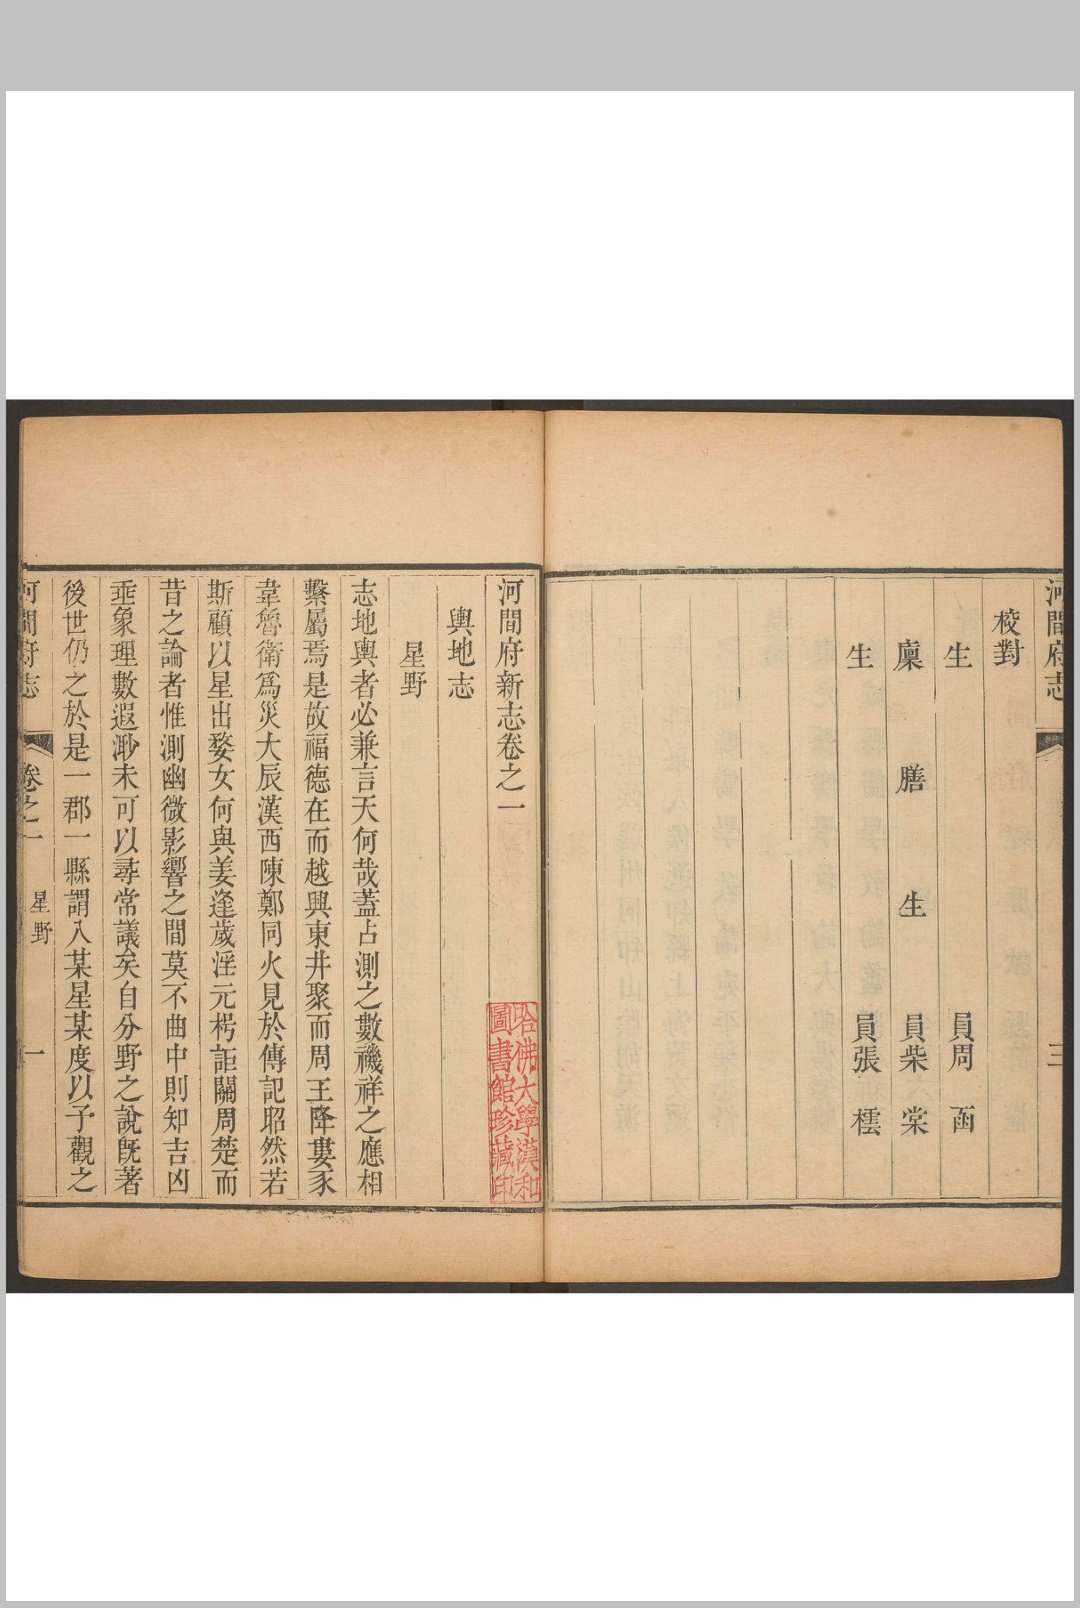 河間府志
三
校對
生員周 函
廩膳生員柴 棠
生員張 橒
河間府新志卷之一
輿地志
星野
志地輿者必兼言天何哉蓋占測之數禨祥之應相
繫屬焉是故福德在而越興東井聚而周王降婁豕
韋魯衛爲災大辰漢西陳鄭同火見於傳記昭然若
斯顧以星出婺女何與姜逢歲淫元枵詎關周楚而
昔之論者惟測幽微影響之間莫不曲中則知吉凶
垂象理數遐渺未可以尋常議矣自分野之說旣著
後世仍之於是一郡一縣謂入某星某度以予觀之
河間府志
卷之一
星野
一
哈佛大學漢和
圖書館珍藏印